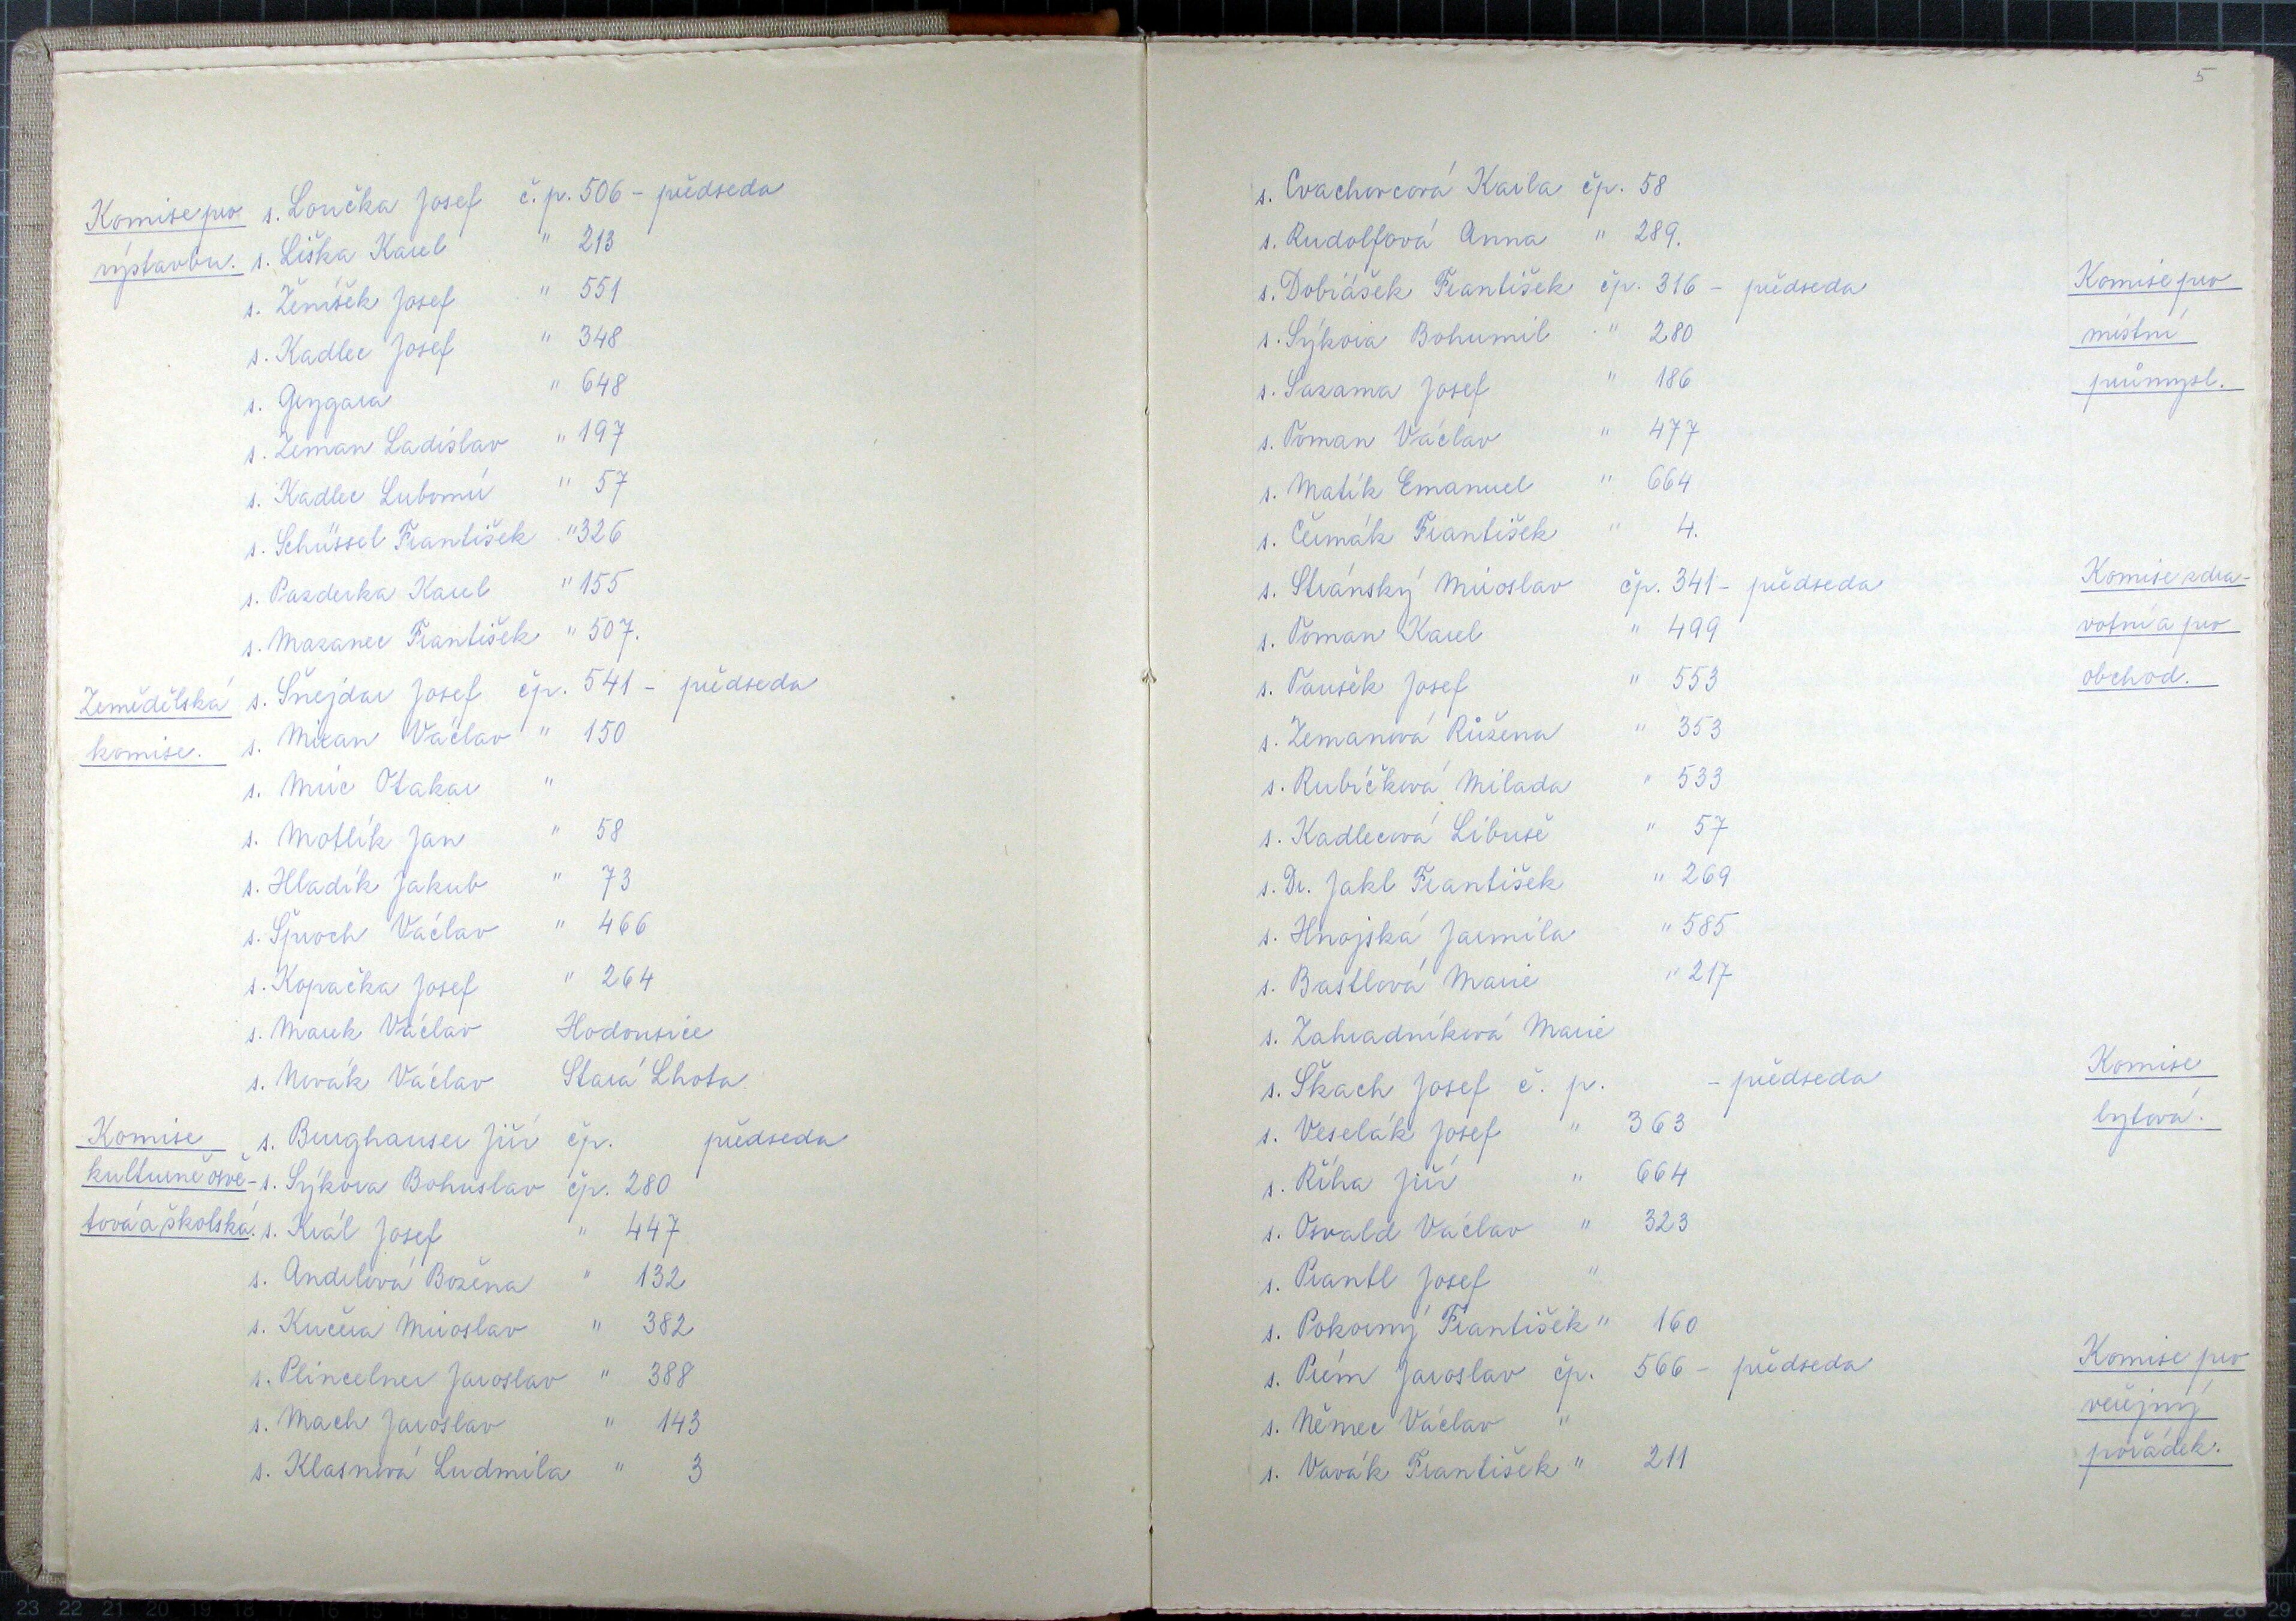 Komise pro s. Loučka Josef č.p. 506 - předseda
výstavbu. s. Liška Karel " 213
s. Ženíšek Josef " 551
s. Kadlec Josef " 348
s. Grygara " 648
s. Zeman Ladislav " 197
s. Kadlec Lubomír " 57
s. Schüssel František " 326
s. Pazderka Karel " 155
s. Mazanec František " 507.
Zemědělská s. Šnejdar Josef čp. 541 - předseda
komise. s. Mizan Václav " 150
s. Múc Otakar "
s. Motlík Jan " 58
s. Hladík Jakub " 73
s. Šproch Václav " 466
s. Kopačka Josef " 264
s. Marek Václav Hodousice
s. Novák Václav Stará Lhota.
Komise s. Burghauser Jiří čp. předseda
kulturně osvě- s. Sýkora Bohuslav čp. 280
tová a školská. s. Král Josef " 447
s. Andrlová Božena " 132
s. Kučera Miroslav " 382
s. Plincelner Jaroslav " 388
s. Mach Jaroslav " 143
s. Klasnová Ludmila " 3
5
s. Cvachovcová Karla čp. 58
s. Rudolfová Anna " 289.
s. Dobiášek František čp. 316 - předseda Komise pro
s. Sýkora Bohumil " 280 místní
s. Sazama Josef " 186 průmysl.
s. Toman Václav " 477
s. Matík Emanuel " 664
s. Čermák František " 4.
s. Stránský Miroslav čp. 341 - předseda Komise zdra-
s. Toman Karel " 499 votní a pro
s. Toušek Josef " 553 obchod.
s. Zemanová Růžena " 353
s. Rubíčková Milada " 533
s. Kadlecová Libuše " 57
s. Dr. Jakl František " 269
s. Hnojská Jarmila " 585
s. Bastlová Marie " 217
s. Zahradníková Marie
s. Škach Josef č. p. - předseda Komise
s. Veselák Josef " 363 bytová.
s. Říha Jiří " 664
s. Osvald Václav " 323
s. Prantl Josef "
s. Pokorný František " 160
s. Prém Jaroslav čp. 566 - předseda Komise pro
s. Němec Václav " veřejný
s. Vavák František " 211 pořádek.